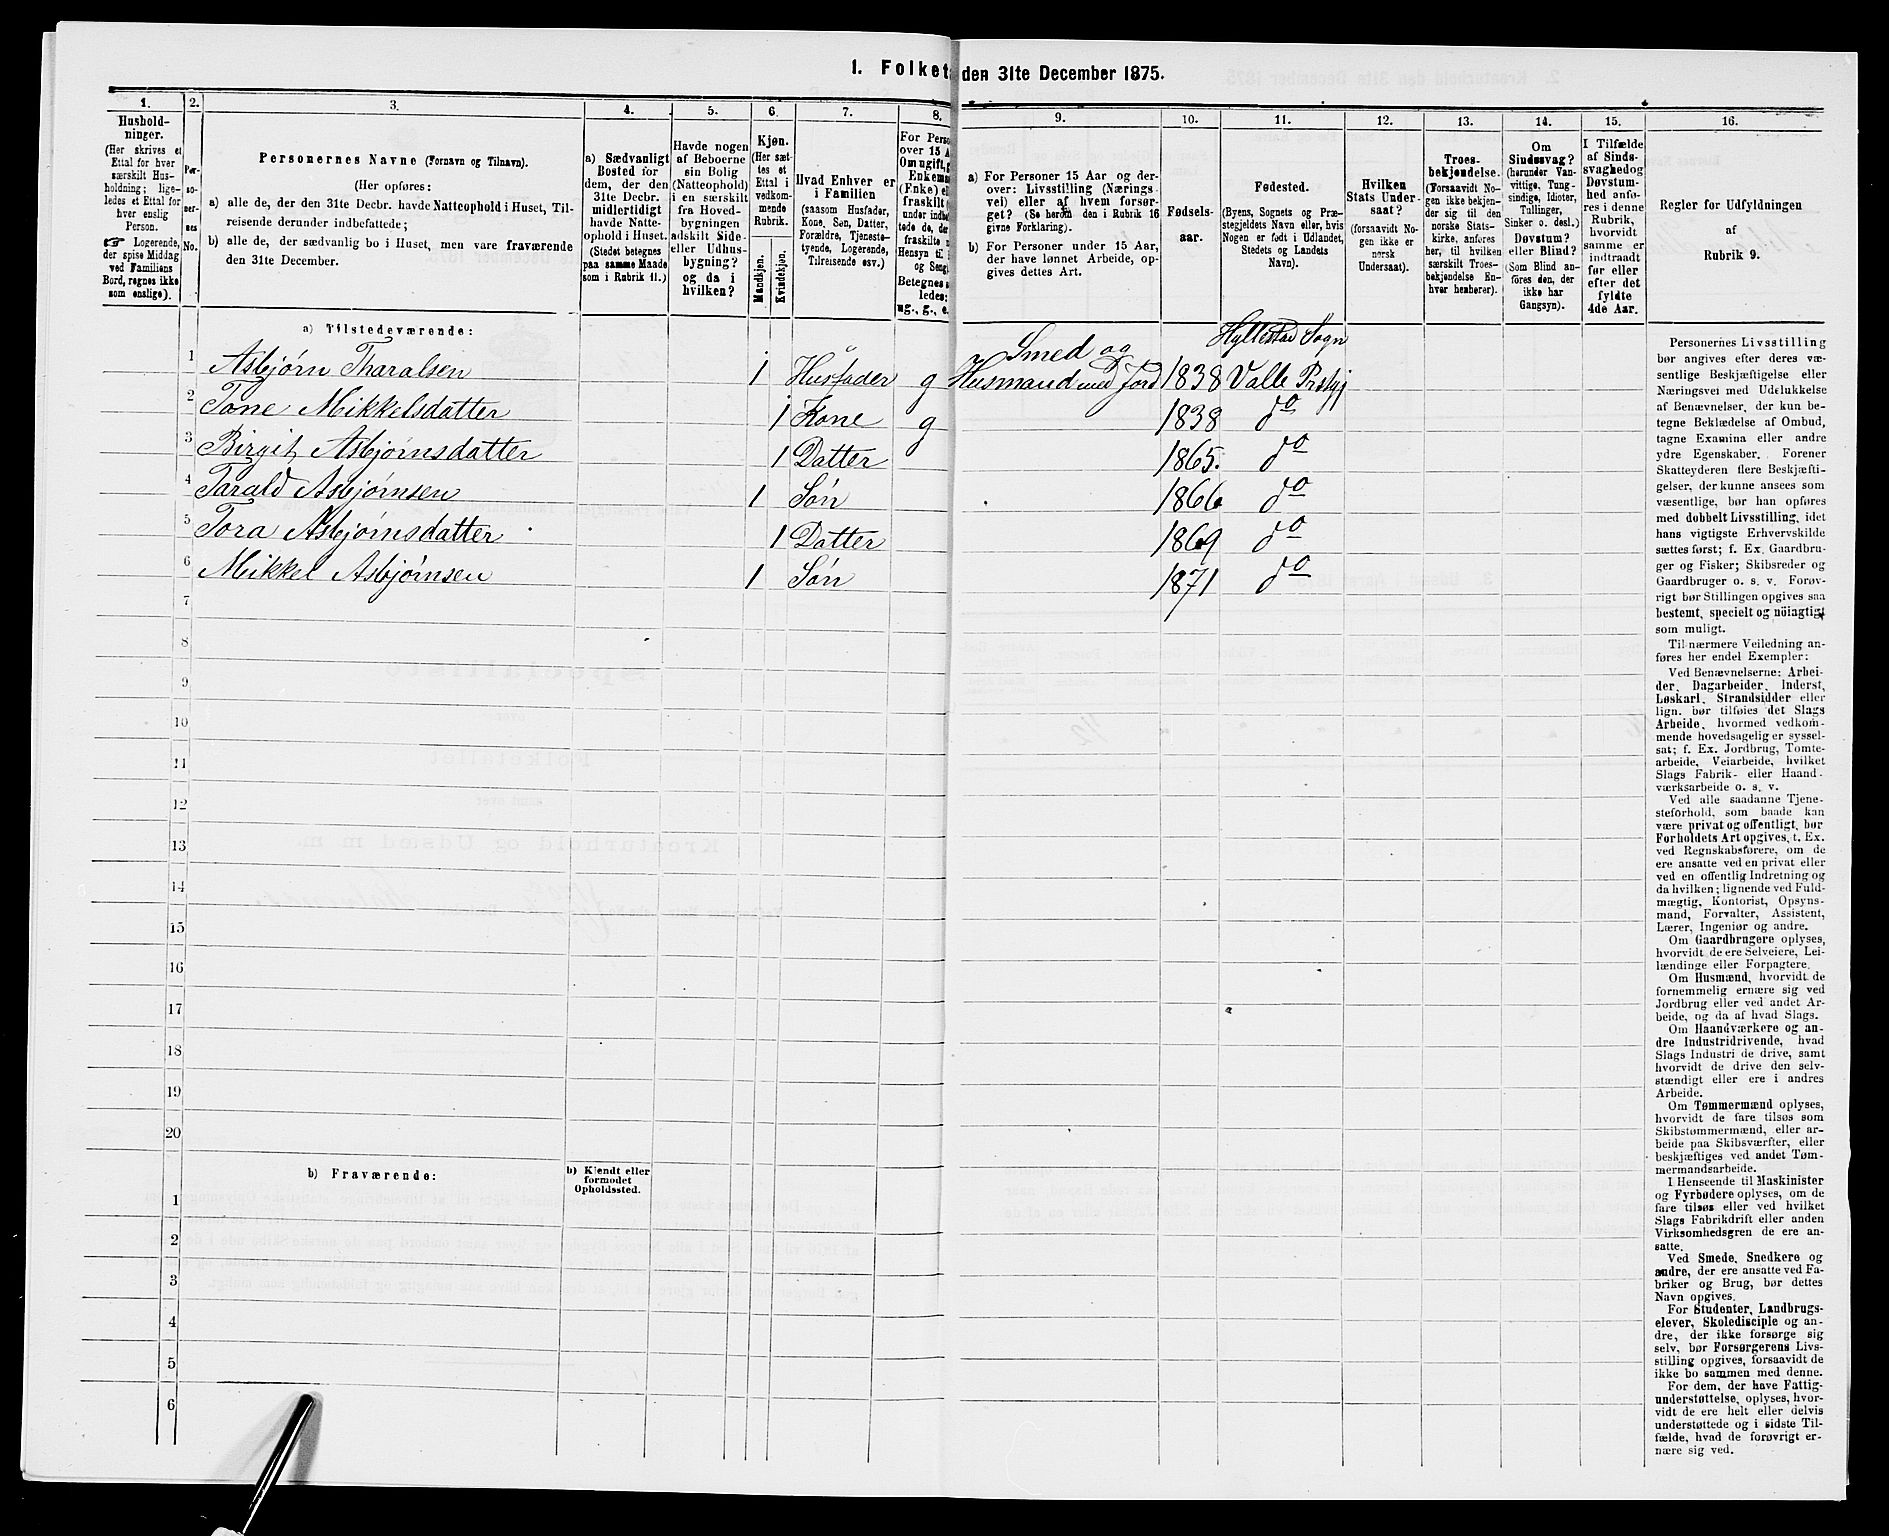 1. Folket
den 31te December 1875.
1.
Hushold-
ninger.
(Her skrives et
Ettal for hver
særskilt Hus-
holdning; lige-
ledes et Ettal for
hver enslig
Person.
☞ Logerende,
der spise Middag
ved Familiens
Bord, regnes ikke
som enslige).
2.
Per-
so-
ner-
nes
No.
3.
Personernes Navne (Fornavn og Tilnavn).
(Her opføres:
a) alle de, der den 31te Decbr. havde Natteophold i Huset, Til-
reisende derunder indbefattede;
b) alle de, der sædvanlig bo i Huset, men vare fraværende
den 31te December.
4.
a) Sædvanligt
Bosted for
dem, der den
31te Decbr.
midlertidigt
havde Natte-
ophold i Huset.
(Stedet betegnes
paa samme Maade
som i Rubrik 11.)
5.
Havde nogen
af Beboerne
sin Bolig
(Natteophold)
i en særskilt
fra Hoved-
bygningen
adskilt Side-
eller Udhus-
bygning?
og da i
hvilken?
6.
Kjøn.
(Her sæt-
tes et
Ettal i
vedkom-
mende
Rubrik.
Mandkjøn.
Kvindekjøn.
7.
Hvad Enhver er
i Familien
(saasom Husfader,
Kone, Søn, Datter,
Forældre, Tjeneste-
tyende, Logerende,
Tilreisende osv.)
8.
For Perso
over 15 A
Om ugift, g
Enkem
(Enke) el
fraskilt
under indbe
tede de, der
fraskilte
Hensyn til
og Seng
Betegnes
ledes:
ug., g., e.
9.
a) For Personer 15 Aar og der-
over: Livsstilling (Nærings
vei) eller af hvem forsør-
get? (Se herom den i Rubrik 16
givne Forklaring).
b) For Personer under 15 Aar,
der have lønnet Arbeide, op-
gives dettes Art.
10.
Fødsels-
aar.
11.
Fødested.
(Byens, Sognets og Præ-
stegjeldets Navn eller, hvis
Nogen er født i Udlandet,
Stedets og Landets
Navn).
12.
Hvilken
Stats Under-
saat?
(forsaavidt No-
gen ikke er
norsk
Undersaat).
13.
Troes-
bekjendelse.
(Forsaavidt No-
gen ikke bekjen-
der sig til den
norske Stats-
kirke, anføres
her, til hvilken
særskilt Troes-
bekjendelse En-
hver henhører).
14.
Om
Sindssvag?
(herunder Van-
vittige, Tung-
sindige, Idioter,
Tullinger,
Sinker o. desl.)
Døvstum?
eller Blind?
(Som Blind an-
føres den, der
ikke har
Gangsyn).
15.
I Tilfælde
af Sinds-
svaghed og
Døvstum-
hed anfø-
res i denne
Rubrik,
hvorvidt
samme er
indtraadt
før eller
efter det
fyldte
4de Aar.
16.
Regler for Udfyldningen
af
Rubrik 9.
a) Tilstedeværende:
Hyllestad Sogn
Smed og
1 Asbjørn Tharalsen 1 Husfader g Husmand med Jord 1838 Valle Prstgj
2 Tone Mikkelsdatter 1 Kone g 1838 do
3 Birgit Asbjørnsdatter 1 Datter 1865. do
4 Tarald Asbjørnsen 1 Søn 1866 do
5 Tora Asbjørnsdatter 1 Datter 1869 do
6 Mikkel Asbjørnsen 1 Søn 1871 do
7
8
9
10
11
12
13
14
15
16
17
18
19
20
b) Fraværende:
b) Kjendt eller
formodet
Opholdssted.
1
2
3
4
5
6
Personernes Livsstilling
bør angives efter deres væ-
sentlige Beskjæftigelse eller
Næringsvei med Udelukkelse
af Benævnelser, der kun be-
tegne Beklædelse af Ombud,
tagne Examina eller andre
ydre Egenskaber. Forener
Skatteyderen flere Beskjæfti-
gelser, der kunne ansees som
væsentlige, bør han opføres
med dobbelt Livsstilling, idet
hans vigtigste Erhvervskilde
sættes først; f. Ex. Gaardbru-
ger og Fisker; Skibsreder og
Gaardbruger o. s. v. Forøv-
rigt bør Stillingen opgives saa
bestemt, specielt og nöiagtigt
som muligt.
Til nærmere Veiledning an-
føres her endel Exempler:
Ved Benævnelserne: Arbei-
der, Dagarbeider, Inderst,
Løskarl, Strandsidder eller
lign. bør tilføies det Slags
Arbeide, hvormed vedkom-
mende hovedsagelig er syssel-
sat; f. Ex. Jordbrug, Tomte-
arbeide, Veiarbeide, hvilket
Slags Fabrik- eller Haand-
værksarbeide o. s. v.
Ved alle saadanne Tjene-
steforhold, som baade kan
være privat og offentligt, bør
Forholdets Art opgives, t. Ex.
ved Regnskabsførere, om de
ere ansatte ved en privat eller
ved en offentlig Indretning og
da hvilken; lignende ved Fuld-
mægtig, Kontorist, Opsyns-
mand, Forvalter, Assistent,
Lærer, Ingeniør og andre.
Om Gaardbrugere oplyses,
hvorvidt de ere Selveiere, Lei-
lændinge eller Forpagtere.
Om Husmænd, hvorvidt de
fornemmelig ernære sig ved
Jordbrug eller ved andet Ar-
beide, og da af hvad Slags.
Om Haandværkere og an-
dre Industridrivende, hvad
Slags Industri de drive, samt
hvorvidt de drive den selv-
stændigt eller ere i andres
Arbeide.
Om Tømmermænd oplyses,
hvorvidt de fare tilsøs som
Skibstømmermænd, eller ar-
beide paa Skibsværfter, eller
beskjæftiges ved andet Tøm-
mermandsarbeide.
I Henseende til Maskinister
og Fyrbødere oplyses, om de
fare tilsøs eller ved hvilket
Slags Fabrikdrift eller anden
Virksomhedsgren de ere an-
satte.
Ved Smede, Snedkere og
andre, der ere ansatte ved Fa-
briker og Brug, bør dettes
Navn opgives.
For Studenter, Landbrugs-
elever, Skoledisciple og an-
dre, der ikke forsørge sig
selv, bør Forsørgerens Livs-
stilling opgives, forsaavidt de
ikke bo sammen med denne.
For dem, der have Fattig-
understøttelse, oplyses, hvor-
vidt de ere helt eller delvis
understøttede og i sidste Til-
fælde, hvad de forøvrigt er-
nære sig ved.